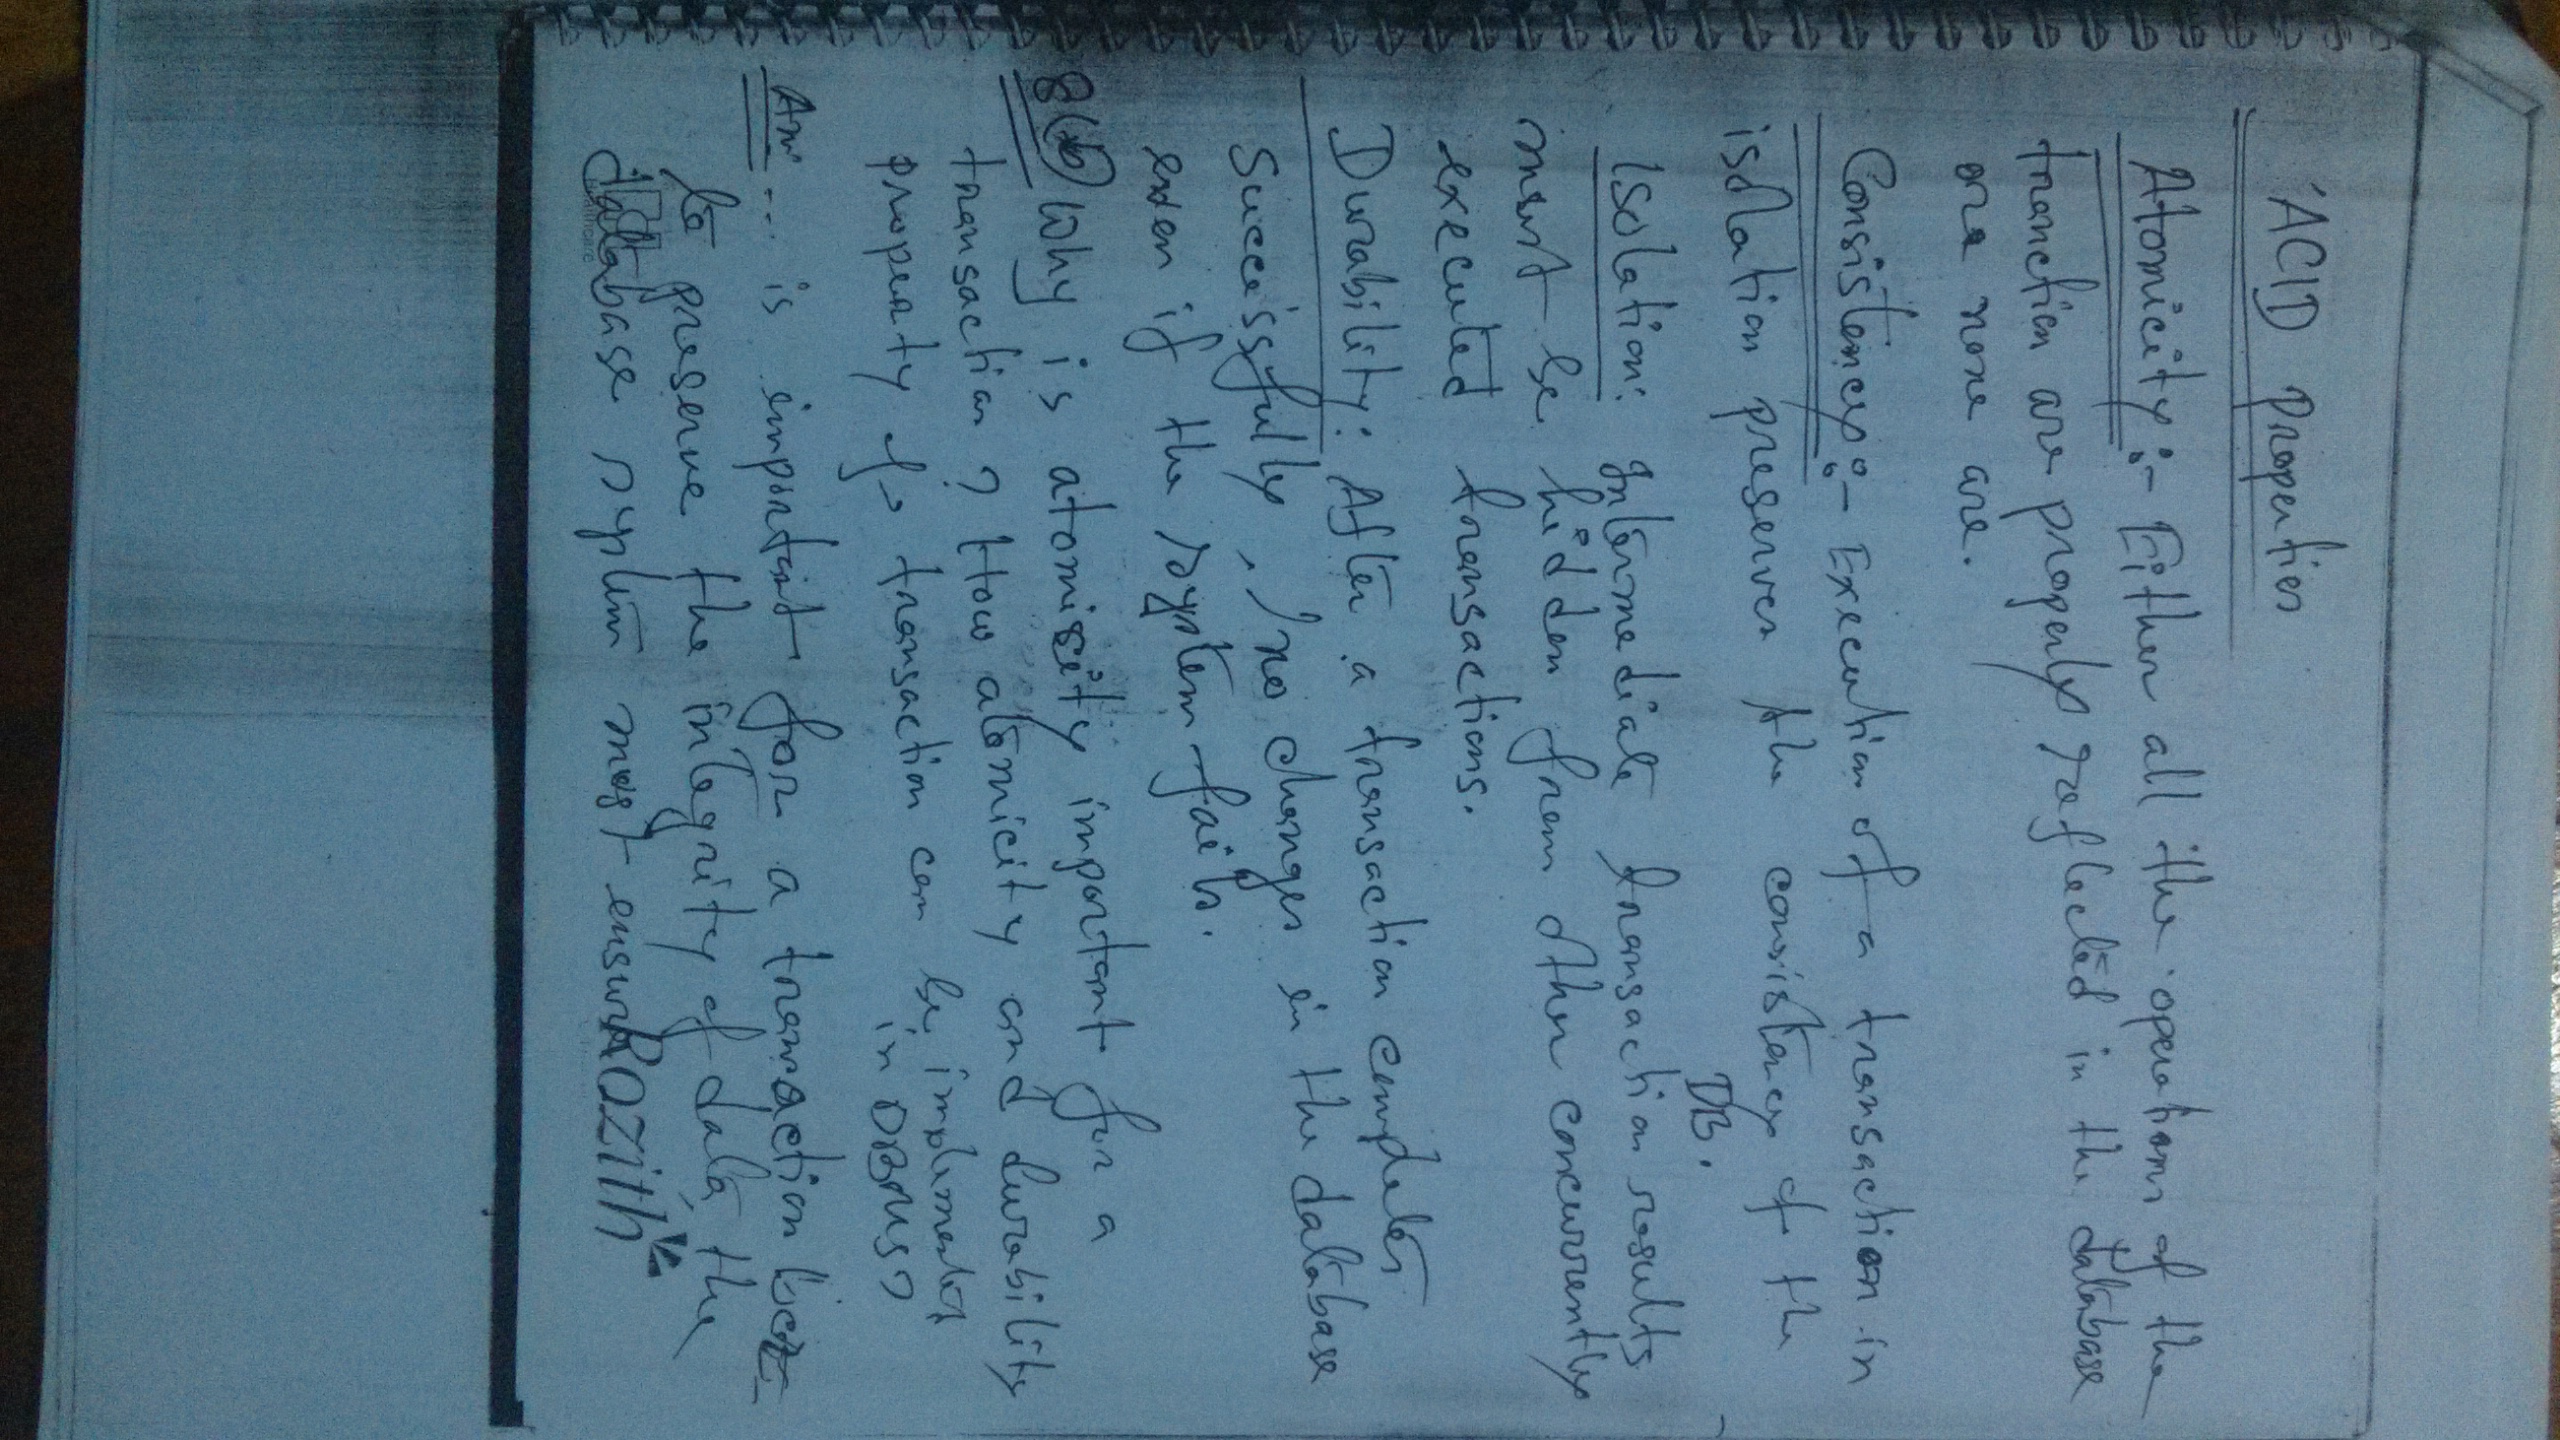 ACID Properties
Atomicity :- Either all the operations of the
tranction are properly reflected in the database
ore none are.
Consistency :- Execution of a transaction in
isolation preserves the consistency of the
DB.
Isolation: Intermediate transaction results
must be hidden from other concurrently
executed transactions.
Durability: After a transaction completes
Successfully, the changes in the database
even if the system fails.
8(b) Why is atomicity important for a
transaction? How atomicity and durability
property of transaction can be implemented
in DBMS?
Ans ... is important for a transaction
to preserve the integrity of data, the
database system must ensure
ROZith